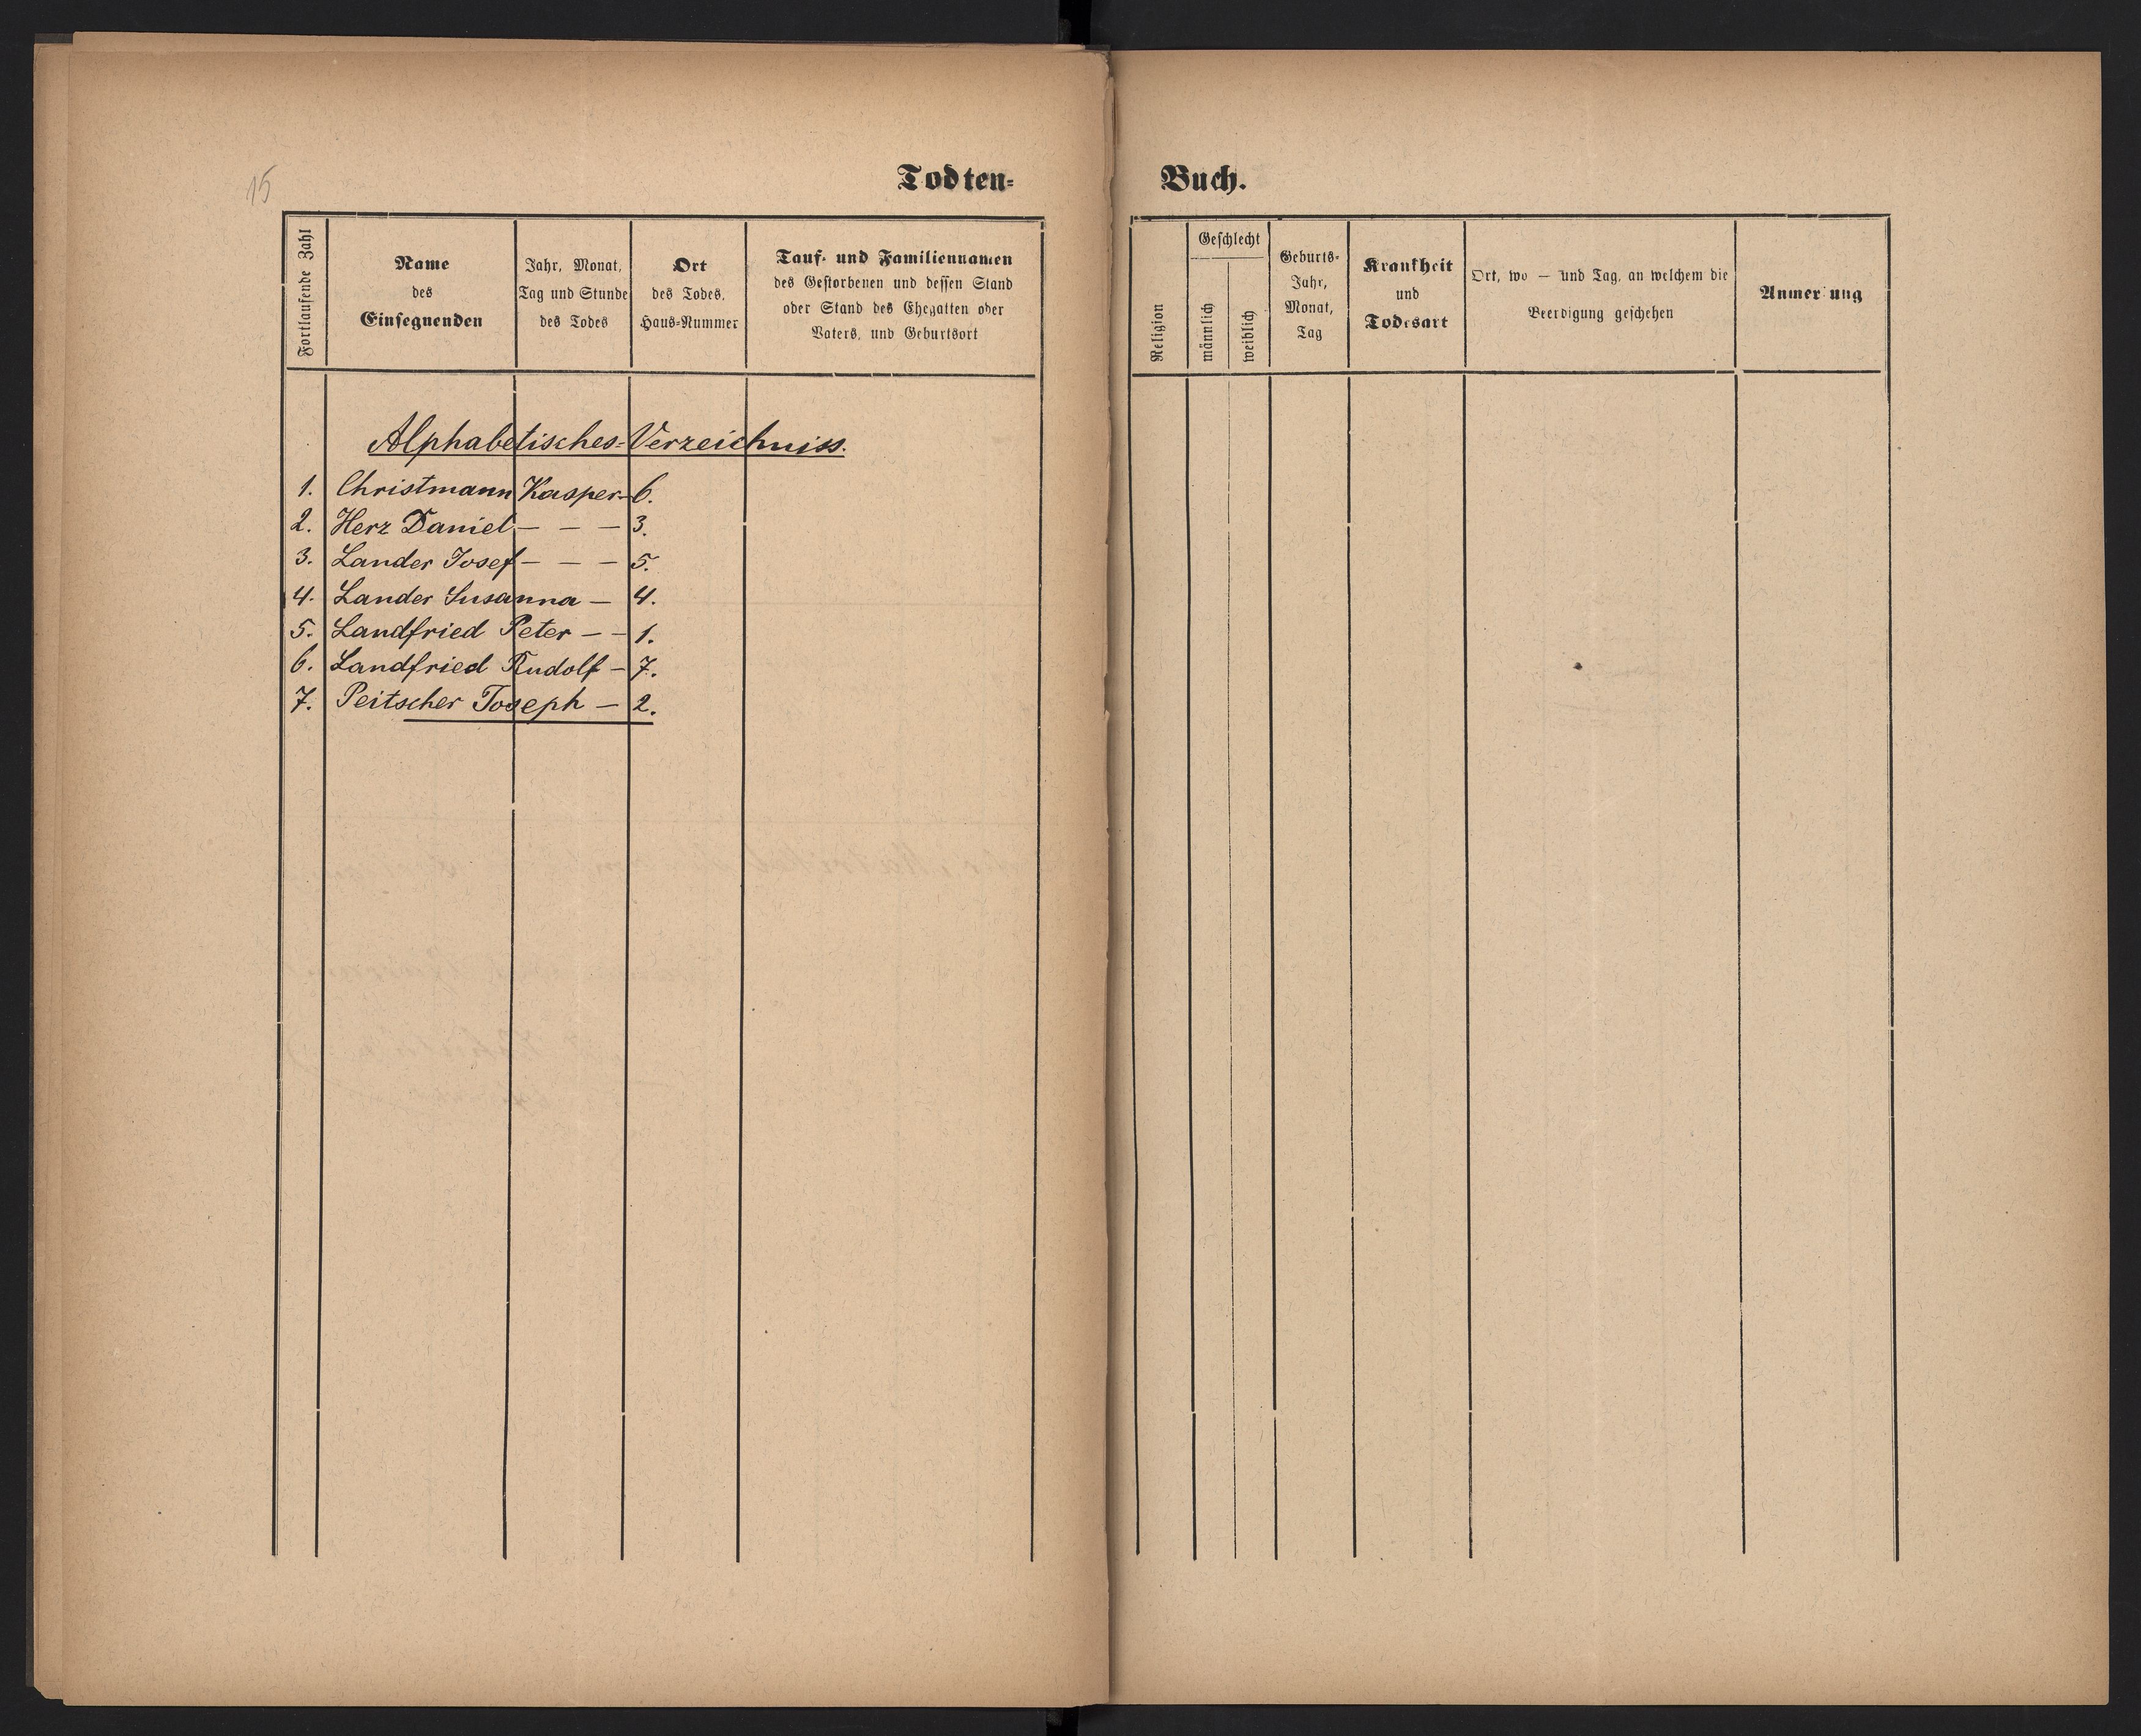 15
Todten-
Buch.
Fortlaufende Zahl
Name
des
Einsegnenden
Jahr, Monat,
Tag und Stunde
des Todes
Ort
des Todes,
Haus-Nummer
Tauf- und Familiennamen
des Gestorbenen und dessen Stand
oder Stand des Ehegatten oder
Vaters, und Geburtsort
Religion
Geschlecht
männlich
weiblich
Geburts-
Jahr,
Monat,
Tag
Krankheit
und
Todesart
Ort, wo — und Tag, an welchem die
Beerdigung geschehen
Anmer ung
Alphabetisches-Verzeichniss.
1. Christmann Kasper - 6.
2. Herz Daniel - - - 3.
3. Lander Josef - - - 5.
4. Lander Susanna - 4.
5. Landfried Peter - - 1.
6. Landfried Rudolf - 7.
7. Peitscher Joseph - 2.